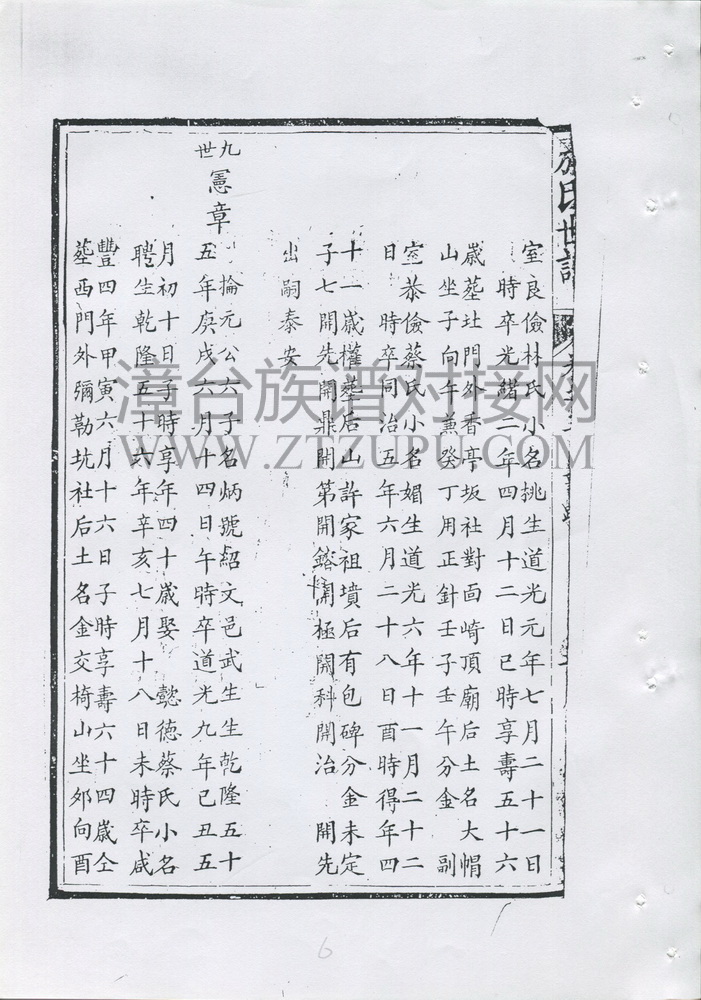 氏世譜
室良儉林氏小名挑生道光元年七月二十一日
時卒光緒二年四月十二日巳時享壽五十六
歲塟社門外香亭坂社對面崎頂廟后土名大帽
山坐子向午兼癸丁用正針壬子壬午分金 副
室恭儉蔡氏小名媚生道光六年十一月二十二
日 時卒同治五年六月二十八日酉時得年四
十一歲權塟后山許家祖墳后有包碑分金未定
子七開先開鼎開第開鎔開極開科開治 開先
出嗣泰安
九世
憲章 掄元公六子名炳號紹文邑武生生乾隆五十
五年庚戌六月十四日午時卒道光九年己丑五
月初十日子時享年四十歲娶 懿德蔡氏小名
聘生乾隆五十六年辛亥七月十八日未時卒咸
豐四年甲寅六月十六日子時享壽六十四歲仝
塟西門外彌勒坑社后土名金交椅山坐卯向酉
漳台族谱对接网
WWW.ZTZUPU.COM
6